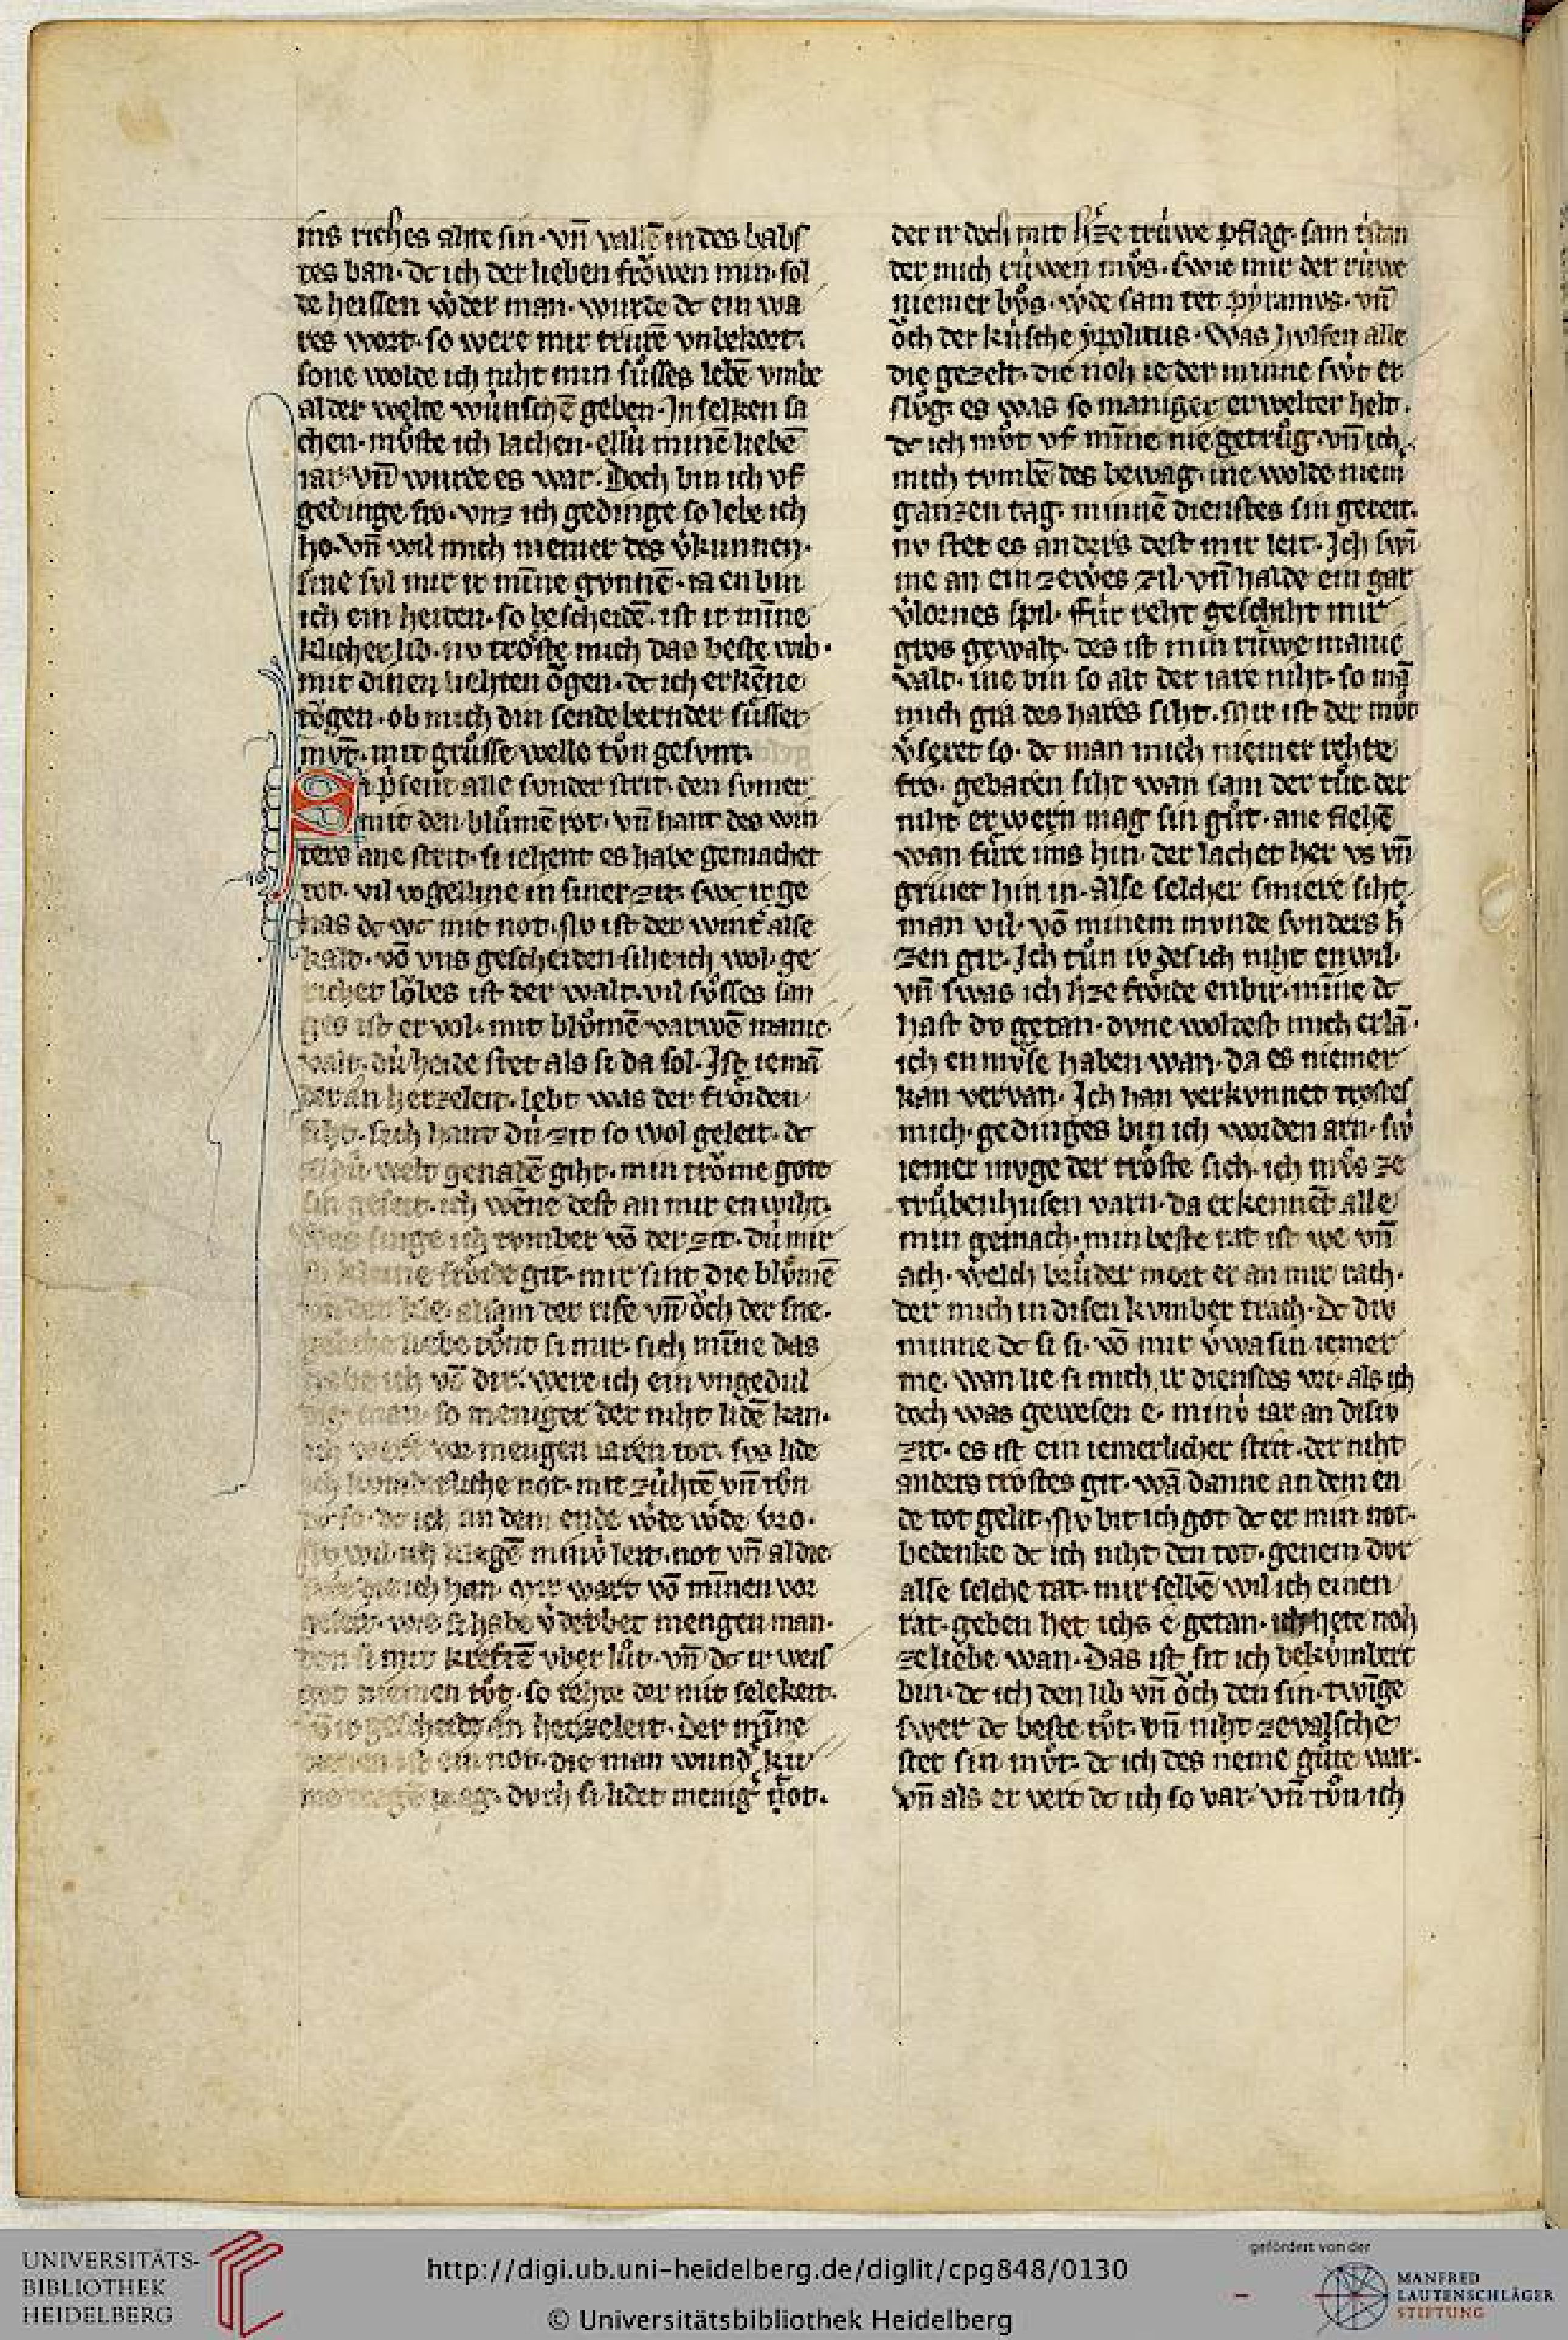 ins riches ahte sin · vn̄ vallē in des babs
tes ban · dc ich der lieben frowen min · sol
te heissen w̾der man · wurde dc ein wa
res wort · so were mir trurē vnbekort ·
sone wolde ich niht min suͤsses lebē vmbe
al der welte wunschē geben · In selken sa
chen · muͤste ich lachen · ellu minē liebē
iar · vn̄ wurde es war · Doch bin ich vf
gedinge fro · vnz ich gedinge so lebe ich
ho · vn̄ wil mich niemer des v̾kunnen ·
sine sul mir ir mīne gunnē · ia en bin
ich ein heiden · so bescheidē · ist ir mīne
klicher lib · nv troste mich das beste wib ·
mit dinen liehten ogen · dc ich erkēne
togen · ob mich din sendebernder suͤsser
mvt · mit gruͦsse welle tuͦn gesunt ·
Si prisent alle sunder strit · den sumer
mit den bluͦmē rot · vn̄ hant des win
ters ane strit · si iehent es habe gemachet
tot · vil vogelline in siner zit · swc ir ge
nas dc wc mit not · Nv ist der wint̾ alse
kald · vō vns gescheiden sihe ich wol · ge
richet lobes ist der walt · vil suͤsses san
ges ist er vol · mit bluͦmē varwē manic
valt · du heide stet als si da sol · Ist iemā
der an herzeleit · lebt was der froiden
siht · sich hant du zit so wol geleit · dc
al du welt genadē giht · min trome gote
sin geseit · ich wēne dest an mir en wiht ·
Was singe ich tomber vō der zit · du mir
so kleine froide git · mir sint die bluͦmē
vn̄ der kle · alsam der rife vn̄ och der sne ·
liebe tvnt si mir · sich mīne das
habe ich vō dir · were ich ein vngedul
dig man · so meniger der niht lidē kan ·
ich were vor mengen iaren tot · svs lide
ich kumberliche not · mit zuhtē vn̄ tvn
so · dc ich an dem ende w̾de w̾de vro ·
Nv wil ich klagē minv̾ leit · not vn̄ al die
die ich han · mir wart vō mīnen vor
geseit · wie si habe v̾derbet mengen man ·
den si mit kreftē vber lut · vn̄ dc ir weis
got niemen tuͦt · so rehte der mit selekeit ·
gescheide in herzeleit · der mīne
ist ein not · die man wund̾ ku
me mag · dvrh si lidet menig̾ not ·
der ir doch mit h̾ze truwe pflag · sam tristan
der mich ruwen mvs · swie mir der ruwe
niemer bvs · w̾de sam tet pyramus · vn̄
och der kusche ypolitus · Was hulfen alle
die gezelt · die noh ie der minne sw̾t er
slvg · es was so maniger erwelter helt ·
dc ich mvt vf mīne nie getruͦg · vn̄ ich
mich tumbē des bewag · ine wolde niem
ganzen tag · minnē dienstes sin gereit ·
nv stet es anders dest mir leit · Ich swi
me an ein zewes zil · vn̄ halde ein gar
v̾lornes spil · Fur reht geschiht mir
gros gewalt · des ist min ruwe manic
valt · ine bin so alt der iare niht · so mā
mich gra des hares siht · Mir ist der mvt
v̾seret so · dc man mich niemer rehte
fro · gebaren siht wan sam der tuͦt · der
niht erwern mag sin guͦt · ane flehē
wan fure ins hin · der lachet her vs vn̄
grinet hin in · Alse selcher smiere siht
man vil · vō minem munde sunders h̾
zen gir · Ich tuͦn iv des ich niht enwil ·
vn̄ swas ich h̾ze froide enbir · mīne dc
hast dv getan · dvne woltest mich erlā ·
ich en mvse haben wan · da es niemer
kan vervan · Ich han verkunnet trostes
mich · gedinges bin ich worden arn · sw̾
iemer mvge der troste sich · ich mvs ze
truͦbenhusen varn · da erkennēt alle
min gemach · min beste rat ist we vn̄
ach · welch bruder mort er an mir rach ·
der mich in disen kumber trach · dc div
minne dc si si · vō mir v̾wasin iemer
me · wan lie si mich ir dienstes vri · als ich
doch was gewesen e · minv̾ iar an disiv
zit · es ist ein iemerlicher strit · der niht
anders trostes git · wā danne an dem en
de tot gelit · Nv bit ich got dc er min not ·
bedenke dc ich niht den tot · geriem dvr
alse selche tat · mir selbē wil ich einen
rat · geben het ichs e getan · ich hete noh
ze liebe wan · Das ist sit ich bekumbert
bin · dc ich den lib vn̄ och den sin · twīge
swer dc beste tuͦt · vn̄ niht ze valsche
stet sin mvt · dc ich des neme guͦte war ·
vn̄ als er vert dc ich so var · vn̄ tuͦn ich
UNIVERSITÄTS-
BIBLIOTHEK
HEIDELBERG
http://digi.ub.uni-heidelberg.de/diglit/cpg848/0130
© Universitätsbibliothek Heidelberg
gefördert von der
MANFRED
LAUTENSCHLÄGER
STIFTUNG